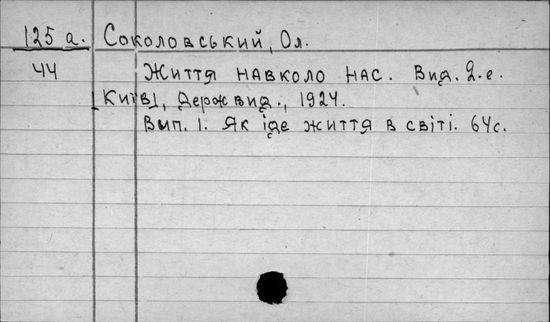 125 а. Соколовський, Ол.
44 Життя навколо нас. Вид. 2-е.
[Київ], Держвид., 1924.
Вип. 1. Як іде життя в світі. 64с.